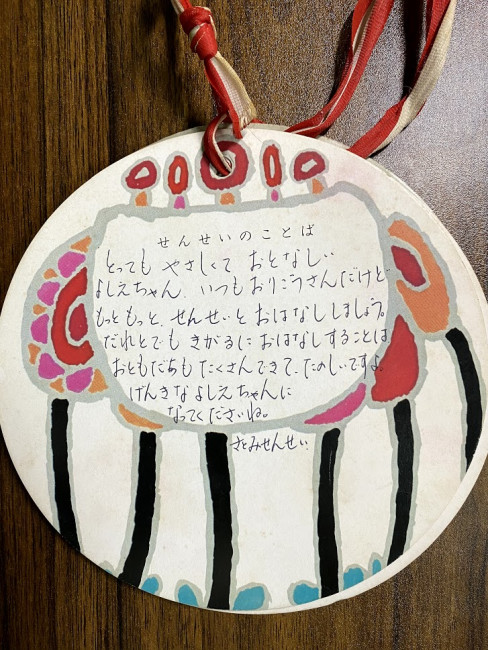 せんせいのことば
とっても やさしくて おとなしい
よしえちゃん、いつもおりこうさんだけど
もっと もっと、せんせいと おはなししましょう。
だれとでも きがるに おはなしすることは
おともだちも たくさんできて、たのしいですよ。
げんきな よしえちゃんに
なってくださいね。
さとみせんせい